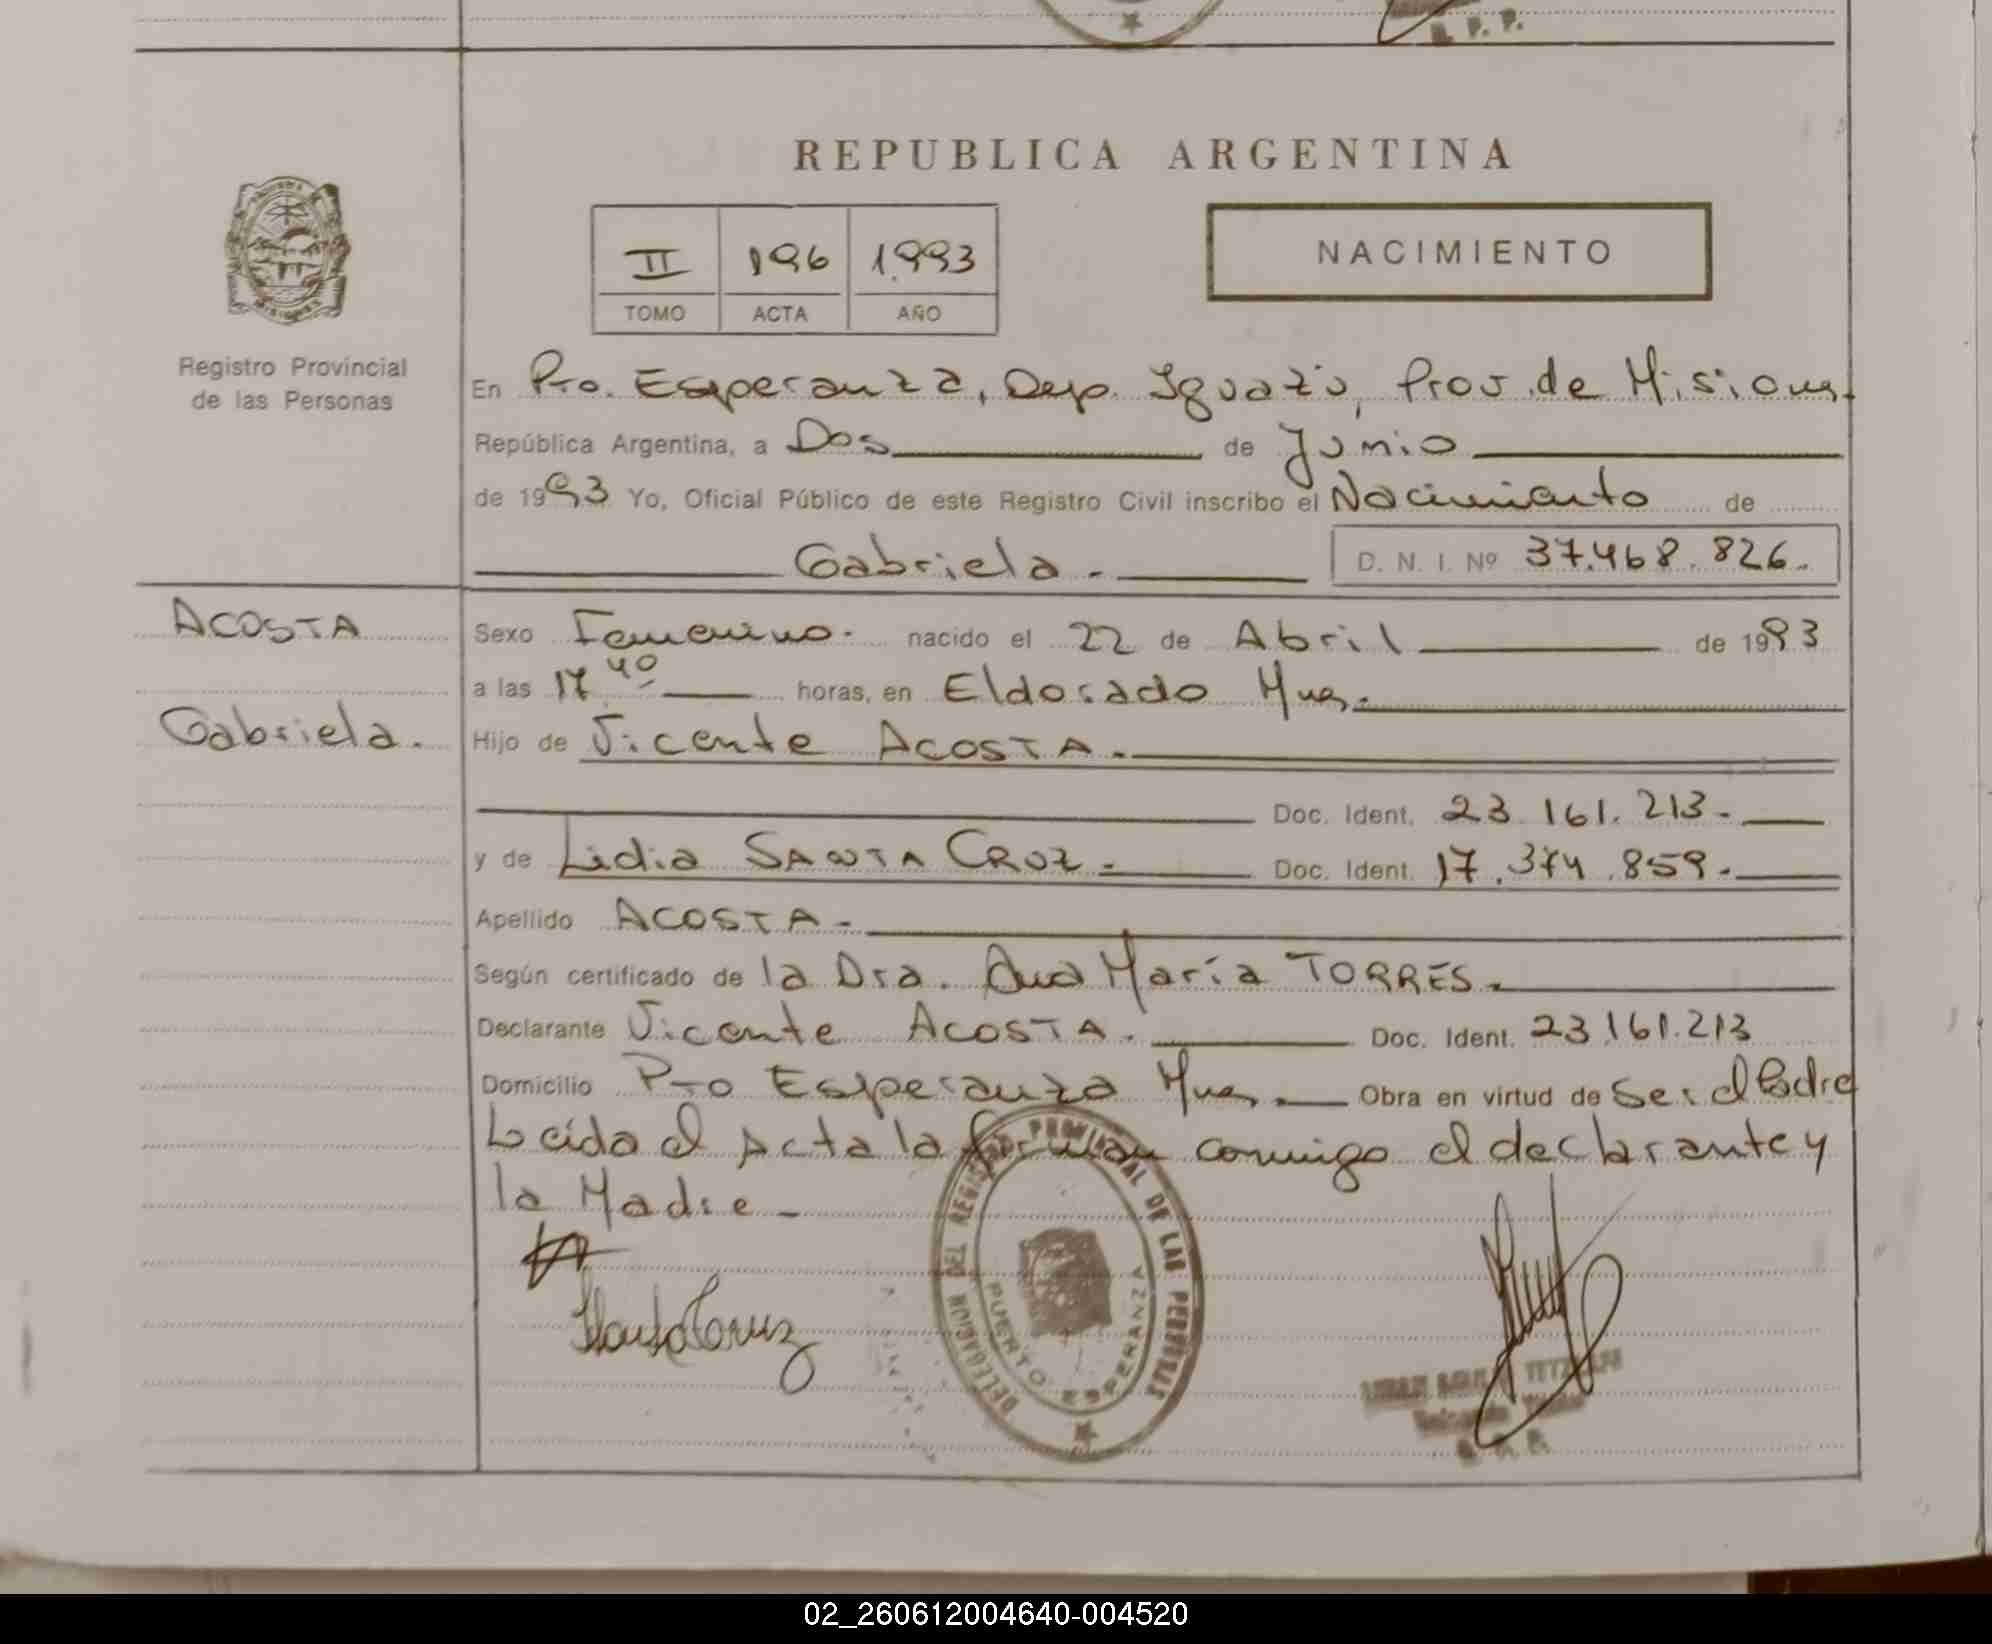 S. P. P.
REPUBLICA ARGENTINA
II 196 1.993
TOMO ACTA AÑO
NACIMIENTO
Registro Provincial
de las Personas
En Pto. Esperanza, Dep. Iguazú, Prov. de Misiones.
República Argentina, a Dos de Junio
de 1993 Yo, Oficial Público de este Registro Civil inscribo el Nacimiento de
Gabriela.- D. N. I. Nº 37.468.826.
ACOSTA
Gabriela.
Sexo Femenino. nacido el 22 de Abril de 1993
a las 17 40 horas, en Eldorado Mnes.
Hijo de Vicente ACOSTA.-
Doc. Ident. 23.161.213.-
y de Lidia SANTA CRUZ.- Doc. Ident. 17.374.859.-
Apellido ACOSTA.-
Según certificado de la Dra. Ana María TORRES.-
Declarante Vicente ACOSTA. Doc. Ident. 23.161.213
Domicilio Pto Esperanza Mnes.- Obra en virtud de Ser el Padre
Leída el Acta la firman conmigo el declarante y
la Madre.-
SantaCruz
DELEGACION DEL REGISTRO PROVINCIAL DE LAS PERSONAS
PUERTO ESPERANZA
02_260612004640-004520